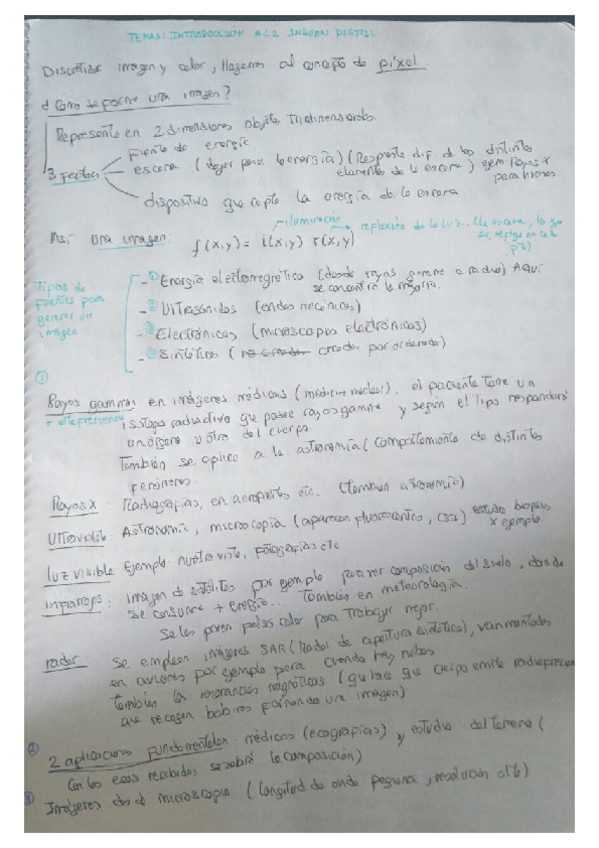 TEMA 1: INTRODUCCIÓN A LA IMAGEN DIGITAL
Discretizar imagen y color, llegamos al concepto de píxel
¿Cómo se forma una imagen?
Representa en 2 dimensiones objetos Tridimensionales.
fuente de energía
3 factores escena (dejar pasar la energía) (Respuesta dif. de los distintos
elementos de la escena) ejem Rayos X
para huesos.
dispositivo que capte la energía de la escena
iluminación
Así una imagen: f(x,y) = i(x,y) r(x,y) reflexión de la luz.. (la escena, lo que
se refleja en la
Tipos de
fuentes para
generar una
imagen
- ① Energía electromagnética (desde rayos gamma a radio) AQUÍ
se concentra la mayoría.
- ② Ultrasónidos (ondas mecánicas)
- ③ Electrónicas (microscopios electrónicos)
- ④ Sintéticas (creadas por ordenador)
①
Rayos gamma: en imágenes médicas (medicina nuclear), el paciente toma un
+ alta frecuencia isótopo radiactivo que posee rayos gamma y según el tipo responderá
un órgano u otro del cuerpo.
También se aplica a la astronomía (comportamiento de distintos
fenómenos.
Rayos X: Radiografías, en aeropuertos etc. (también astronomía)
Ultravioleta: Astronomía, microscopía (aparecen fluorescentes, estudio biopsias
x ejemplo
luz visible Ejemplo nuestra vista, fotografías etc
infrarrojos: imagen de satélites por ejemplo para ver composición del suelo, donde
se consume + energía... También en meteorología.
Se les ponen falso color para trabajar mejor.
radar: Se emplean imágenes SAR (Radar de apertura sintética), van montados
en aviones por ejemplo para cuando hay nubes
también las resonancias magnéticas (que hace que cuerpo emite radiofrecuen
que recogen bobinas formando una imagen)
② 2 aplicaciones fundamentales médicas (ecografías) y estudio del terreno (
Con los ecos recibidos se sabrá la composición)
③ Imágenes de microscopio (longitud de onda pequeña, resolución alta)